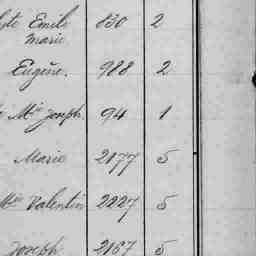 Emile 830 2
Marie
Eugène. 988 2
Mie Joseph 94 1
Marie 2177 5
Mie Valentin 2227 5
Joseph 2167 5